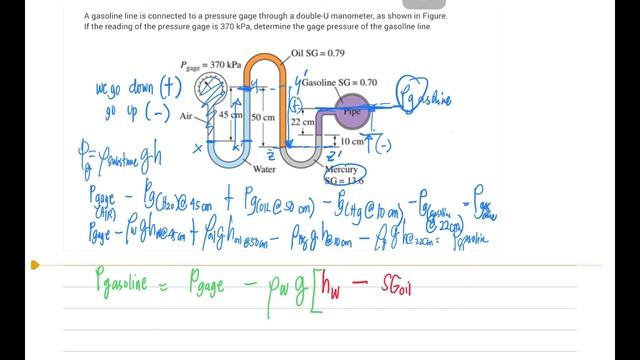 A gasoline line is connected to a pressure gage through a double-U manometer, as shown in Figure.
If the reading of the pressure gage is 370 kPa, determine the gage pressure of the gasoline line
Oil SG = 0.79
Pgage = 370 kPa
we go down (+)
go up (-)
Gasoline SG = 0.70
Pgasoline
Pipe
Air
45 cm
50 cm
22 cm
10 cm
(+)
(-)
y y'
x x'
z z'
Water
Mercury
SG = 13.6
Pg = ρsubstance g h
Pgage (AIR) - Pg(H2O)@45cm + Pg(OIL@50cm) - Pg(Hg@10cm) - Pg(gasoline @22cm) = Pgasoline
Pgage - ρw g hw@45cm + ρoil g hoil@50cm - ρHg g h@10cm - ρg g h@22cm = Pgasoline
Pgasoline = Pgage - ρw g [hw - SGoil